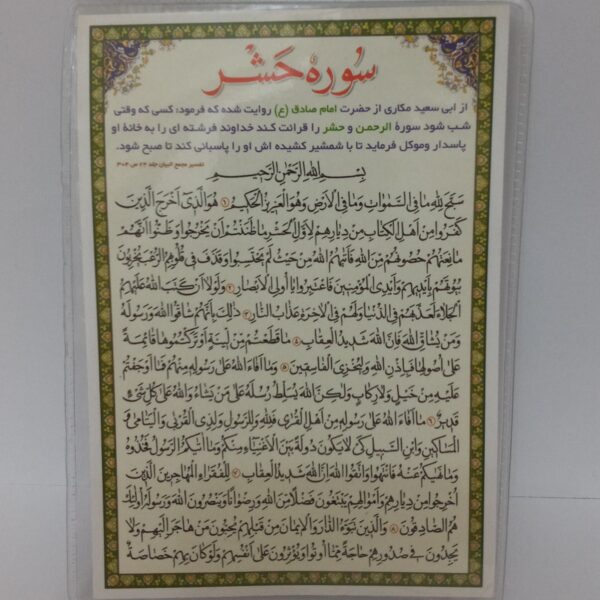 سوره حشر
از ابی سعید مکاری از حضرت امام صادق (ع) روایت شده که فرمود: کسی که وقتی
شب شود سورهٔ الرحمن و حشر را قرائت کند خداوند فرشته ای را به خانهٔ او
پاسدار وموکل فرماید تا با شمشیر کشیده اش او را پاسبانی کند تا صبح شود.
تفسیر مجمع البیان جلد ۲۴ ص ۳۰۳
بِسْمِ اللهِ الرَّحْمٰنِ الرَّحيمِ
سَبَّحَ لِلّٰهِ مَا فِي السَّمٰوَاتِ وَمَا فِي الْاَرْضِ وَهُوَ الْعَزيزُ الْحَكيمُ ۱ هُوَ الَّذي اَخْرَجَ الَّذينَ
كَفَرُوا مِنْ اَهْلِ الْكِتَابِ مِنْ دِيَارِهِمْ لِاَوَّلِ الْحَشْرِ مَا ظَنَنْتُمْ اَنْ يَخْرُجُوا وَظَنُّوا اَنَّهُمْ
مَانِعَتُهُمْ حُصُونُهُمْ مِنَ اللهِ فَاَتٰيهُمُ اللهُ مِنْ حَيْثُ لَمْ يَحْتَسِبُوا وَقَذَفَ في قُلُوبِهِمُ الرُّعْبَ يُخْرِبُونَ
بُيُوتَهُمْ بِاَيْديهِمْ وَاَيْدِي الْمُؤْمِنينَ فَاعْتَبِرُوا يَا اُولِي الْاَبْصَارِ ۲ وَلَوْلَا اَنْ كَتَبَ اللهُ عَلَيْهِمُ
الْجَلَاءَ لَعَذَّبَهُمْ فِي الدُّنْيَا وَلَهُمْ فِي الْاٰخِرَةِ عَذَابُ النَّارِ ۳ ذٰلِكَ بِاَنَّهُمْ شَاقُّوا اللهَ وَرَسُولَهُ
وَمَنْ يُشَاقِّ اللهَ فَاِنَّ اللهَ شَديدُ الْعِقَابِ ۴ مَا قَطَعْتُمْ مِنْ لينَةٍ اَوْ تَرَكْتُمُوهَا قَائِمَةً
عَلٰى اُصُولِهَا فَبِاِذْنِ اللهِ وَلِيُخْزِيَ الْفَاسِقينَ ۵ وَمَا اَفَاءَ اللهُ عَلٰى رَسُولِهِ مِنْهُمْ فَمَا اَوْجَفْتُمْ
عَلَيْهِ مِنْ خَيْلٍ وَلَا رِكَابٍ وَلٰكِنَّ اللهَ يُسَلِّطُ رُسُلَهُ عَلٰى مَنْ يَشَاءُ وَاللهُ عَلٰى كُلِّ شَيْءٍ
قَديرٌ ۶ مَا اَفَاءَ اللهُ عَلٰى رَسُولِهِ مِنْ اَهْلِ الْقُرٰى فَلِلّٰهِ وَلِلرَّسُولِ وَلِذِي الْقُرْبٰى وَالْيَتَامٰى وَ
الْمَسَاكينِ وَابْنِ السَّبيلِ كَيْ لَا يَكُونَ دُولَةً بَيْنَ الْاَغْنِيَاءِ مِنْكُمْ وَمَا اٰتٰيكُمُ الرَّسُولُ فَخُذُوهُ
وَمَا نَهٰيكُمْ عَنْهُ فَانْتَهُوا وَاتَّقُوا اللهَ اِنَّ اللهَ شَديدُ الْعِقَابِ ۷ لِلْفُقَرَاءِ الْمُهَاجِرينَ الَّذينَ
اُخْرِجُوا مِنْ دِيَارِهِمْ وَاَمْوَالِهِمْ يَبْتَغُونَ فَضْلًا مِنَ اللهِ وَرِضْوَانًا وَيَنْصُرُونَ اللهَ وَرَسُولَهُ اُولٰئِكَ
هُمُ الصَّادِقُونَ ۸ وَالَّذينَ تَبَوَّءُوا الدَّارَ وَالْايمَانَ مِنْ قَبْلِهِمْ يُحِبُّونَ مَنْ هَاجَرَ اِلَيْهِمْ وَلَا
يَجِدُونَ في صُدُورِهِمْ حَاجَةً مِمَّا اُوتُوا وَيُؤْثِرُونَ عَلٰى اَنْفُسِهِمْ وَلَوْ كَانَ بِهِمْ خَصَاصَةٌ